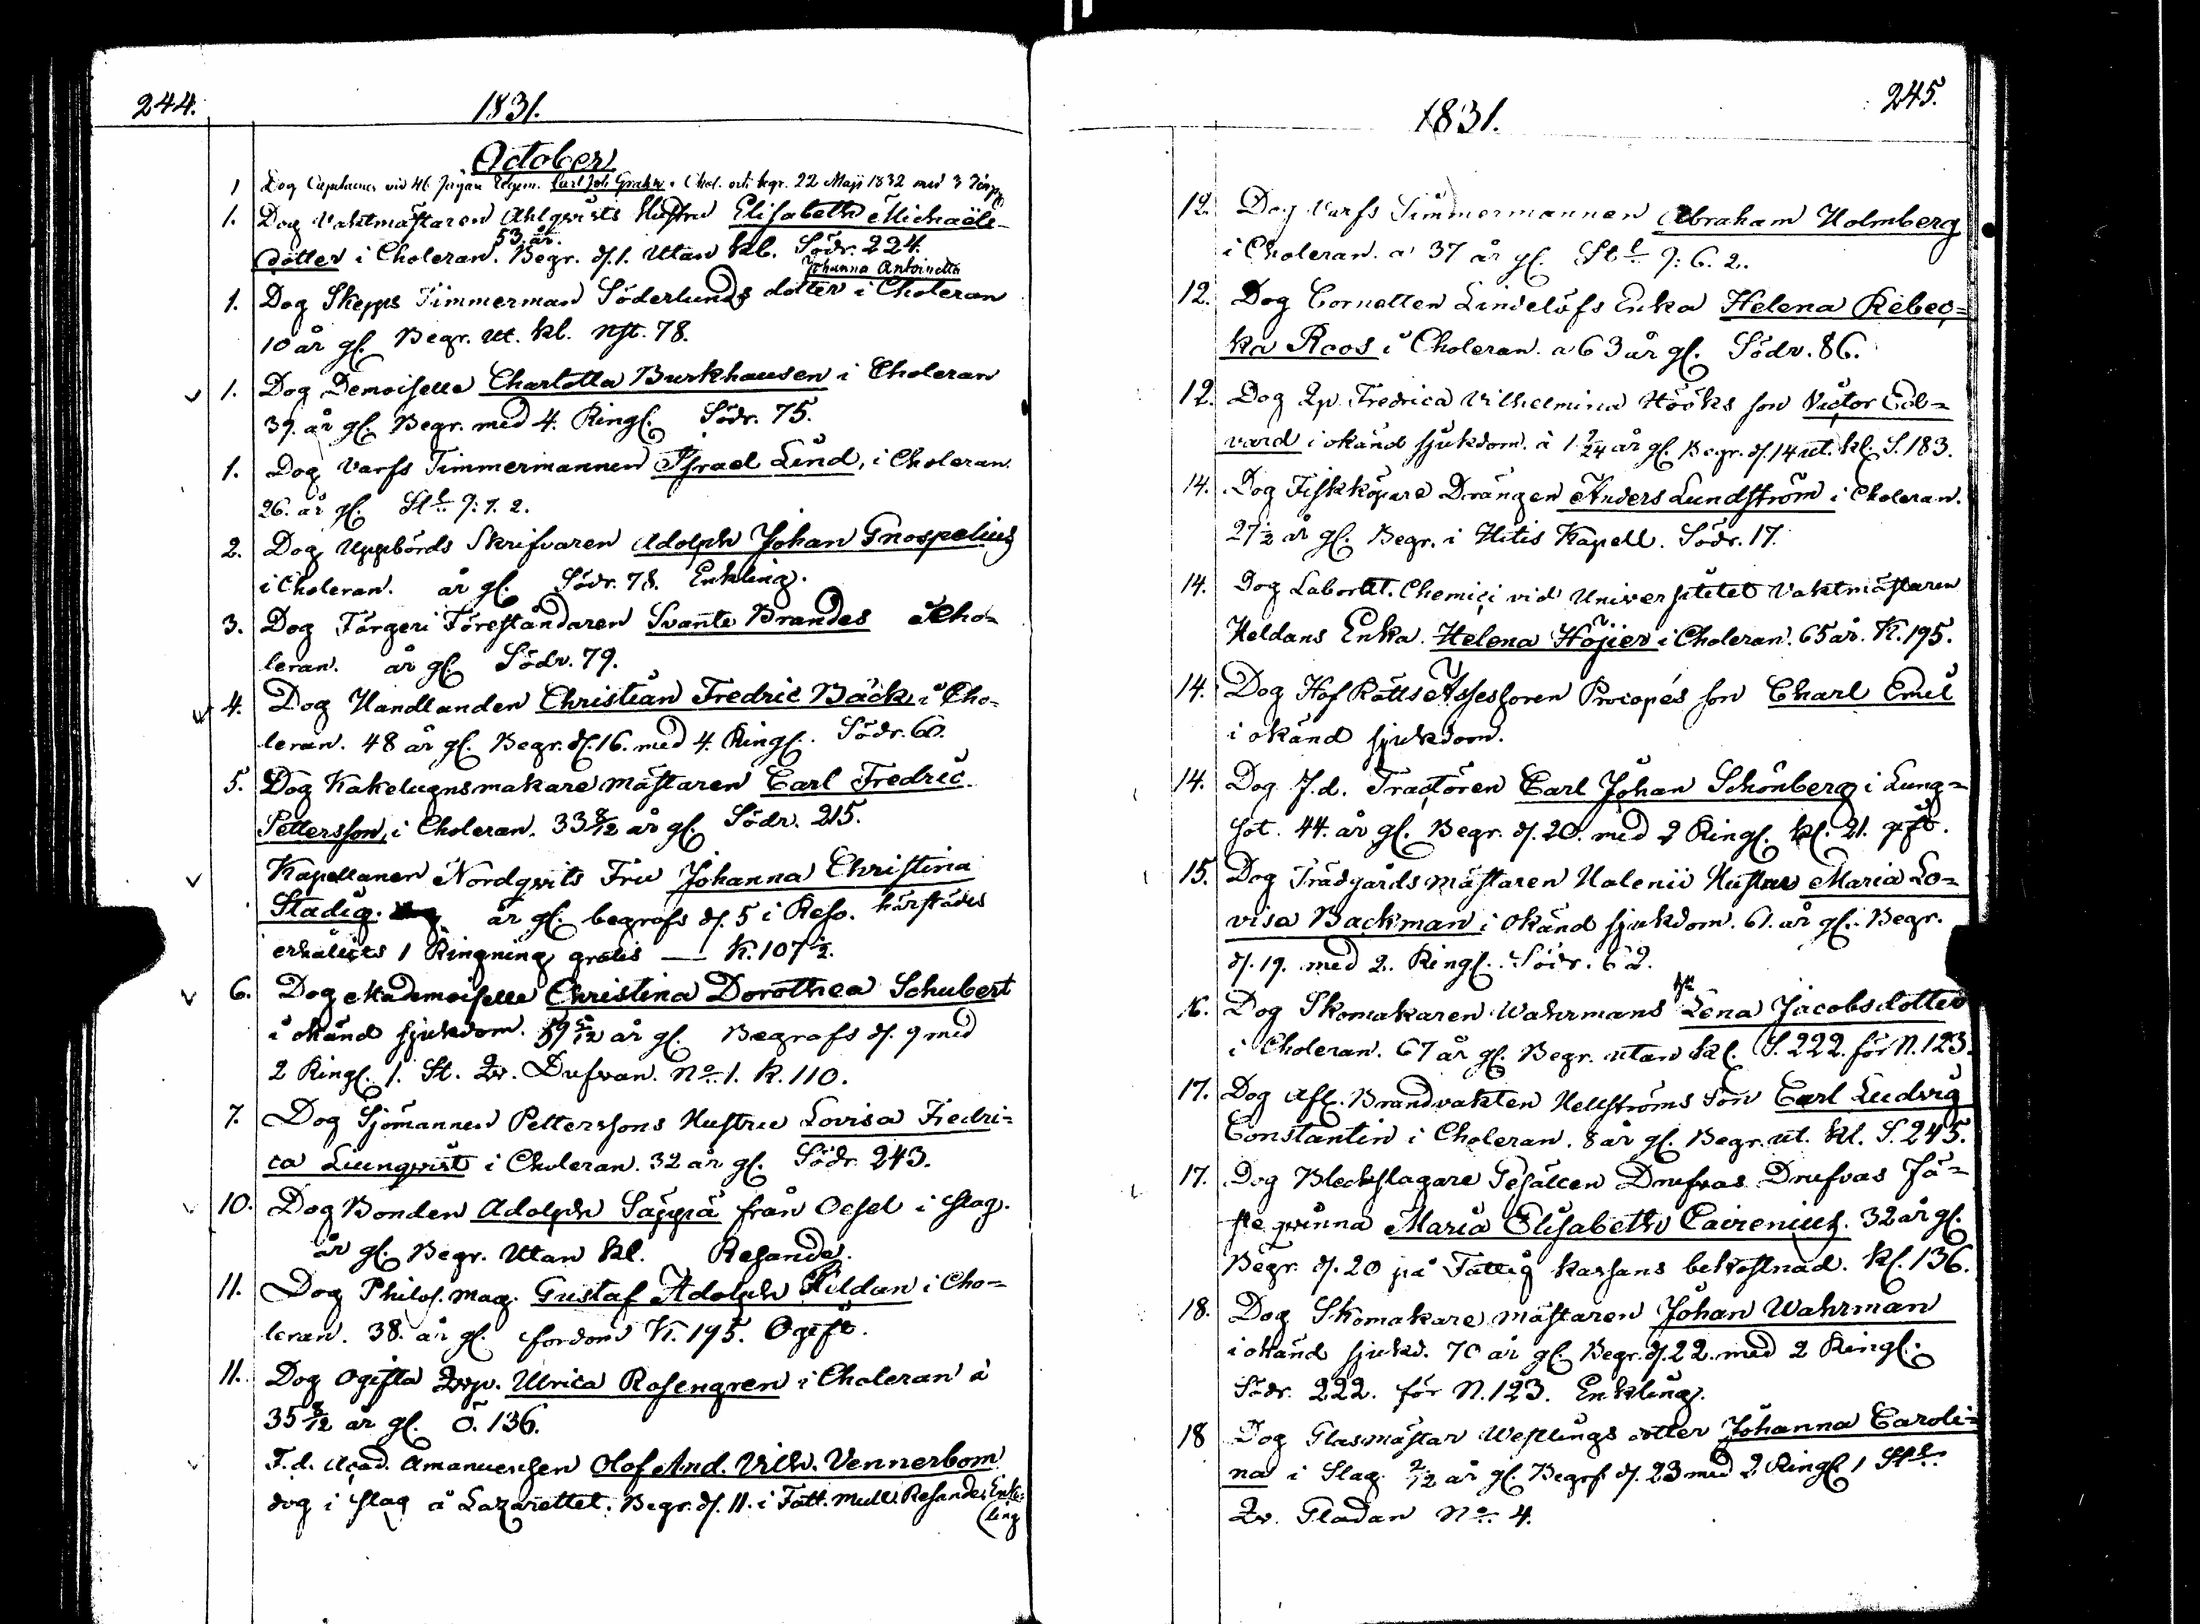 244.
1831.
October
1 Dog Capitainen vid 46 Jägare Regem. Carl Joh Grahn i Chol. och begr. 22 Maji 1832 med 3
1. Dog Vaktmästaren Ahlqvists Hustru Elisabeth Michaëls
53 år.
dotter i Choleran. Begr. d. 1. Utan kl. Södr. 224.
Johanna Antoinetta
1. Dog Skepps Timmerman Söderlunds dotter i Choleran
10 år gl. Begr. ut. kl. Nst. 78.
1. Dog Demoiselle Charlotta Burkhausen i Choleran
39. år gl. Begr. med 4. Ringl. Södr. 75.
1. Dog Varfs Timmermannen Israel Lind, i Choleran.
26. år gl. 7. 2.
2. Dog Uppbörds Skrifvaren Adolph Johan Gnospelius
i Choleran. år gl. Södr. 78. Enkling.
3. Dog Färgeri Föreståndaren Svante Brandes i Cho-
leran. år gl. Södr. 79.
4. Dog Handlanden Christian Fredric Bäck i Cho-
leran. 48 år gl. Begr. d. 16. med 4. Ringl. Södr. 60.
5. Dog Kakelugnsmakare mästaren Carl Fredric
Pettersson, i Choleran. 33 8/12 år gl. Södr. 215.
Kapellanen Nordqvists Fru Johanna Christina
Stadig. år gl. begrofs d. 5 i Reso. härstädes
erhållits 1 Ringning gratis — K. 107 ½.
6. Dog Mademoiselle Christina Dorothea Schubert
i okänd sjukdom. 59 5/12 år gl. Begrofs d. 9 med
2 Ringl. 1. St. Qv. Dufvan. No. 1. K. 110.
7. Dog Sjömannen Petterssons Hustru Lovisa Fredri-
ca Liunqvist i Choleran. 32 år gl. Södr. 243.
10. Dog Bonden Adolph Säppä från Oesel i slag.
år gl. Begr. Utan kl. Resande.
11. Dog Philos. Mag. Gustaf Adolph Hildan i Cho-
leran. 38. år gl. fordom K. 195. Ogift.
11. Dog Ogifta Qvp. Ulrica Rosengren i Choleran a
35 8/12 år gl. O. 136.
F.d. Acad. Amanuensen Olof And. Vilh. Vennerbom
dog i slag å Lazarettet. Begr. d. 11. i Fatt. mull Resande, Enk-
(ling
245.
1831.
12. Dog Varfs Timmermannen Abraham Holmberg
i Choleran. a 37 år gl. 6. 2.
12. Dog Cornetten Lindelöfs Enka Helena Rebec-
ka Roos i Choleran. a 63 år gl. Södr. 86.
12. Dog Qp. Fredrica Vilhelmina Hööks son Victor Ed-
vard i okänd sjukdom. à 1 7/24 år gl. Begr. d. 14 ut. kl. S. 183.
14. Dog Fiskköpare Drängen Anders Lundström i Choleran.
27 ½ år gl. Begr. i Hitis Kapell. Södr. 17.
14. Dog Laborat. Chemici vid Universitetet Vaktmästaren
Heldans Enka. Helena Höjier i Choleran. 65 år. K. 195.
14. Dog Hof Rätts Assessoren Procopés son Charl Emil
i okänd sjukdom.
14. Dog F.d. Tractören Carl Johan Schönberg i Lung-
sot. 44. år gl. Begr. d. 20. med 2 Ringl. Kl. 21. gift.
15. Dog Trädgårds mästaren Halenii Hustru Maria Lo-
visa Backman i okänd sjukdom. 61. år gl. Begr.
d. 19. med 2. Ringl. Södr. 62.
16. Dog Skomakaren Wahrmans Lena Jacobsdotter
i Choleran. 67 år gl. Begr. utan kl. S. 222. för N. 123.
17. Dog Afl. Brandvakten Hellströms Son Carl Ludvig
Constantin i Choleran. 8 år gl. Begr. ut. kl. S. 245.
17. Dog Bleckslagare Gesällen Drufvas Drufvas Fä-
steqvinna Maria Elisabeth Cairenius. 32 år gl.
Begr. d. 20 på Fattig kassans bekostnad. Kl. 136.
18. Dog Skomakare mästaren Johan Wahrman
i okänd sjukd. 70 år gl. Begr. d. 22. med 2 Ringl.
Södr. 222. för N. 123. Enkling.
18 Dog Glasmästar Westlings dotter Johanna Caroli-
na i Slag. 2/12 år gl. Begrf. d. 23 med 2 Ringl. 1 St.
Qv. Gladan No. 4.